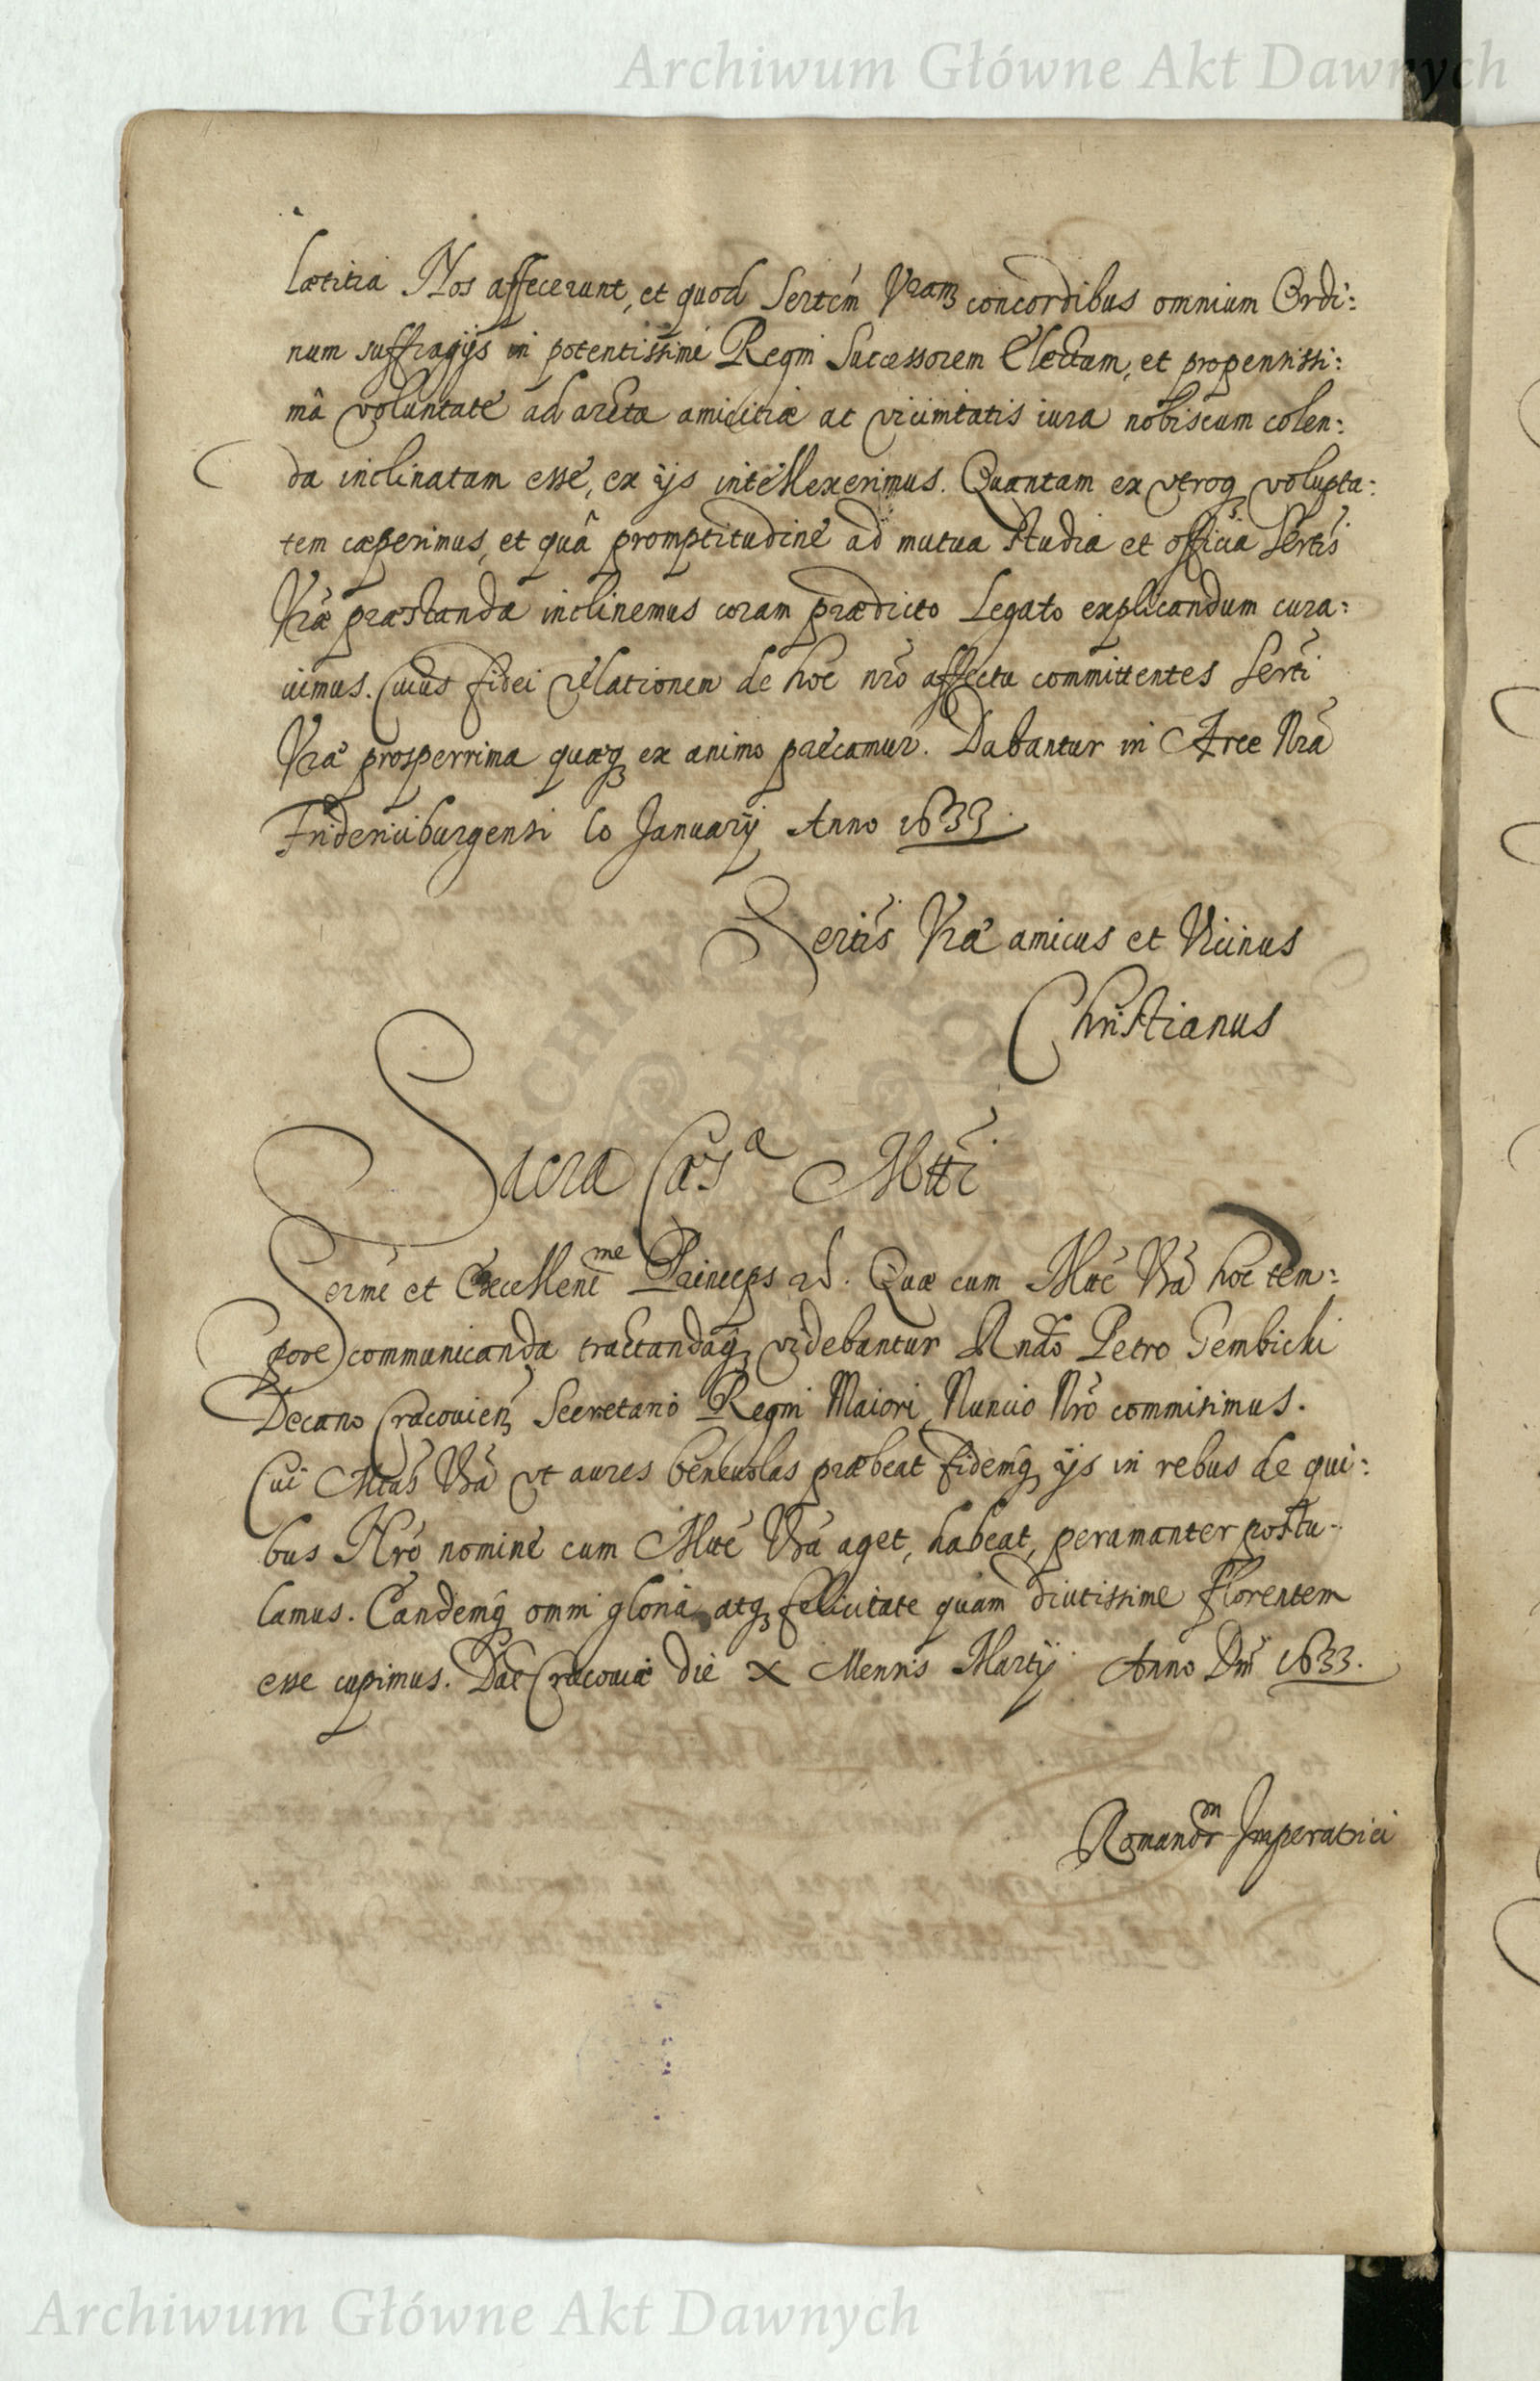 Archiwum Główne Akt Dawnych
lætitia Nos affecerunt, et quod Sertēm Vram concordibus omnium Ordi:
num suffragijs in potentissimi Regni Successorem Electam, et propensissi:
mâ voluntate ad arcta amicitiæ ac vicinitatis iura nobiscum colen:
da inclinatam esse, ex ijs intellexerimus. Quantam ex vtroq volupta:
tem cæperimus, et quâ promptitudine ad mutua studia et officia Sertis
Vræ præstanda inclinemus coram prædicto Legato explicandum cura:
uimus. Cuius fidei relationem de hoc nro affectu committentes Serti
Vræ prosperrima quæq ex animo præcamur. Dabantur in Arce Nrâ
Fridericiburgensi Januarij Anno 1633.
Sertis Vræ amicus et Vicinus
Christianus
Sacra Cæsa Mtti
Serme et Excellenme Princeps Quæ cum Mtte Vrâ hoc tem:
pore communicanda tractandaq videbantur Rndo Petro Gembicki
Decano Cracouien Secretario Regni Maiori Nuncio Nro commisimus.
Cui Mtas Vra vt aures beneuolas præbeat fidemq ijs in rebus de qui:
bus Nro nomine cum Mtte Vrâ aget, habeat, peramanter postu-
lamus. Eandemq omni gloriâ atq felicitate quam diutissime florentem
esse cupimus. Dat Cracouiæ die X Mensis Martij Anno Dni 1633.
Romanorm Imperatrici
Archiwum Główne Akt Dawnych